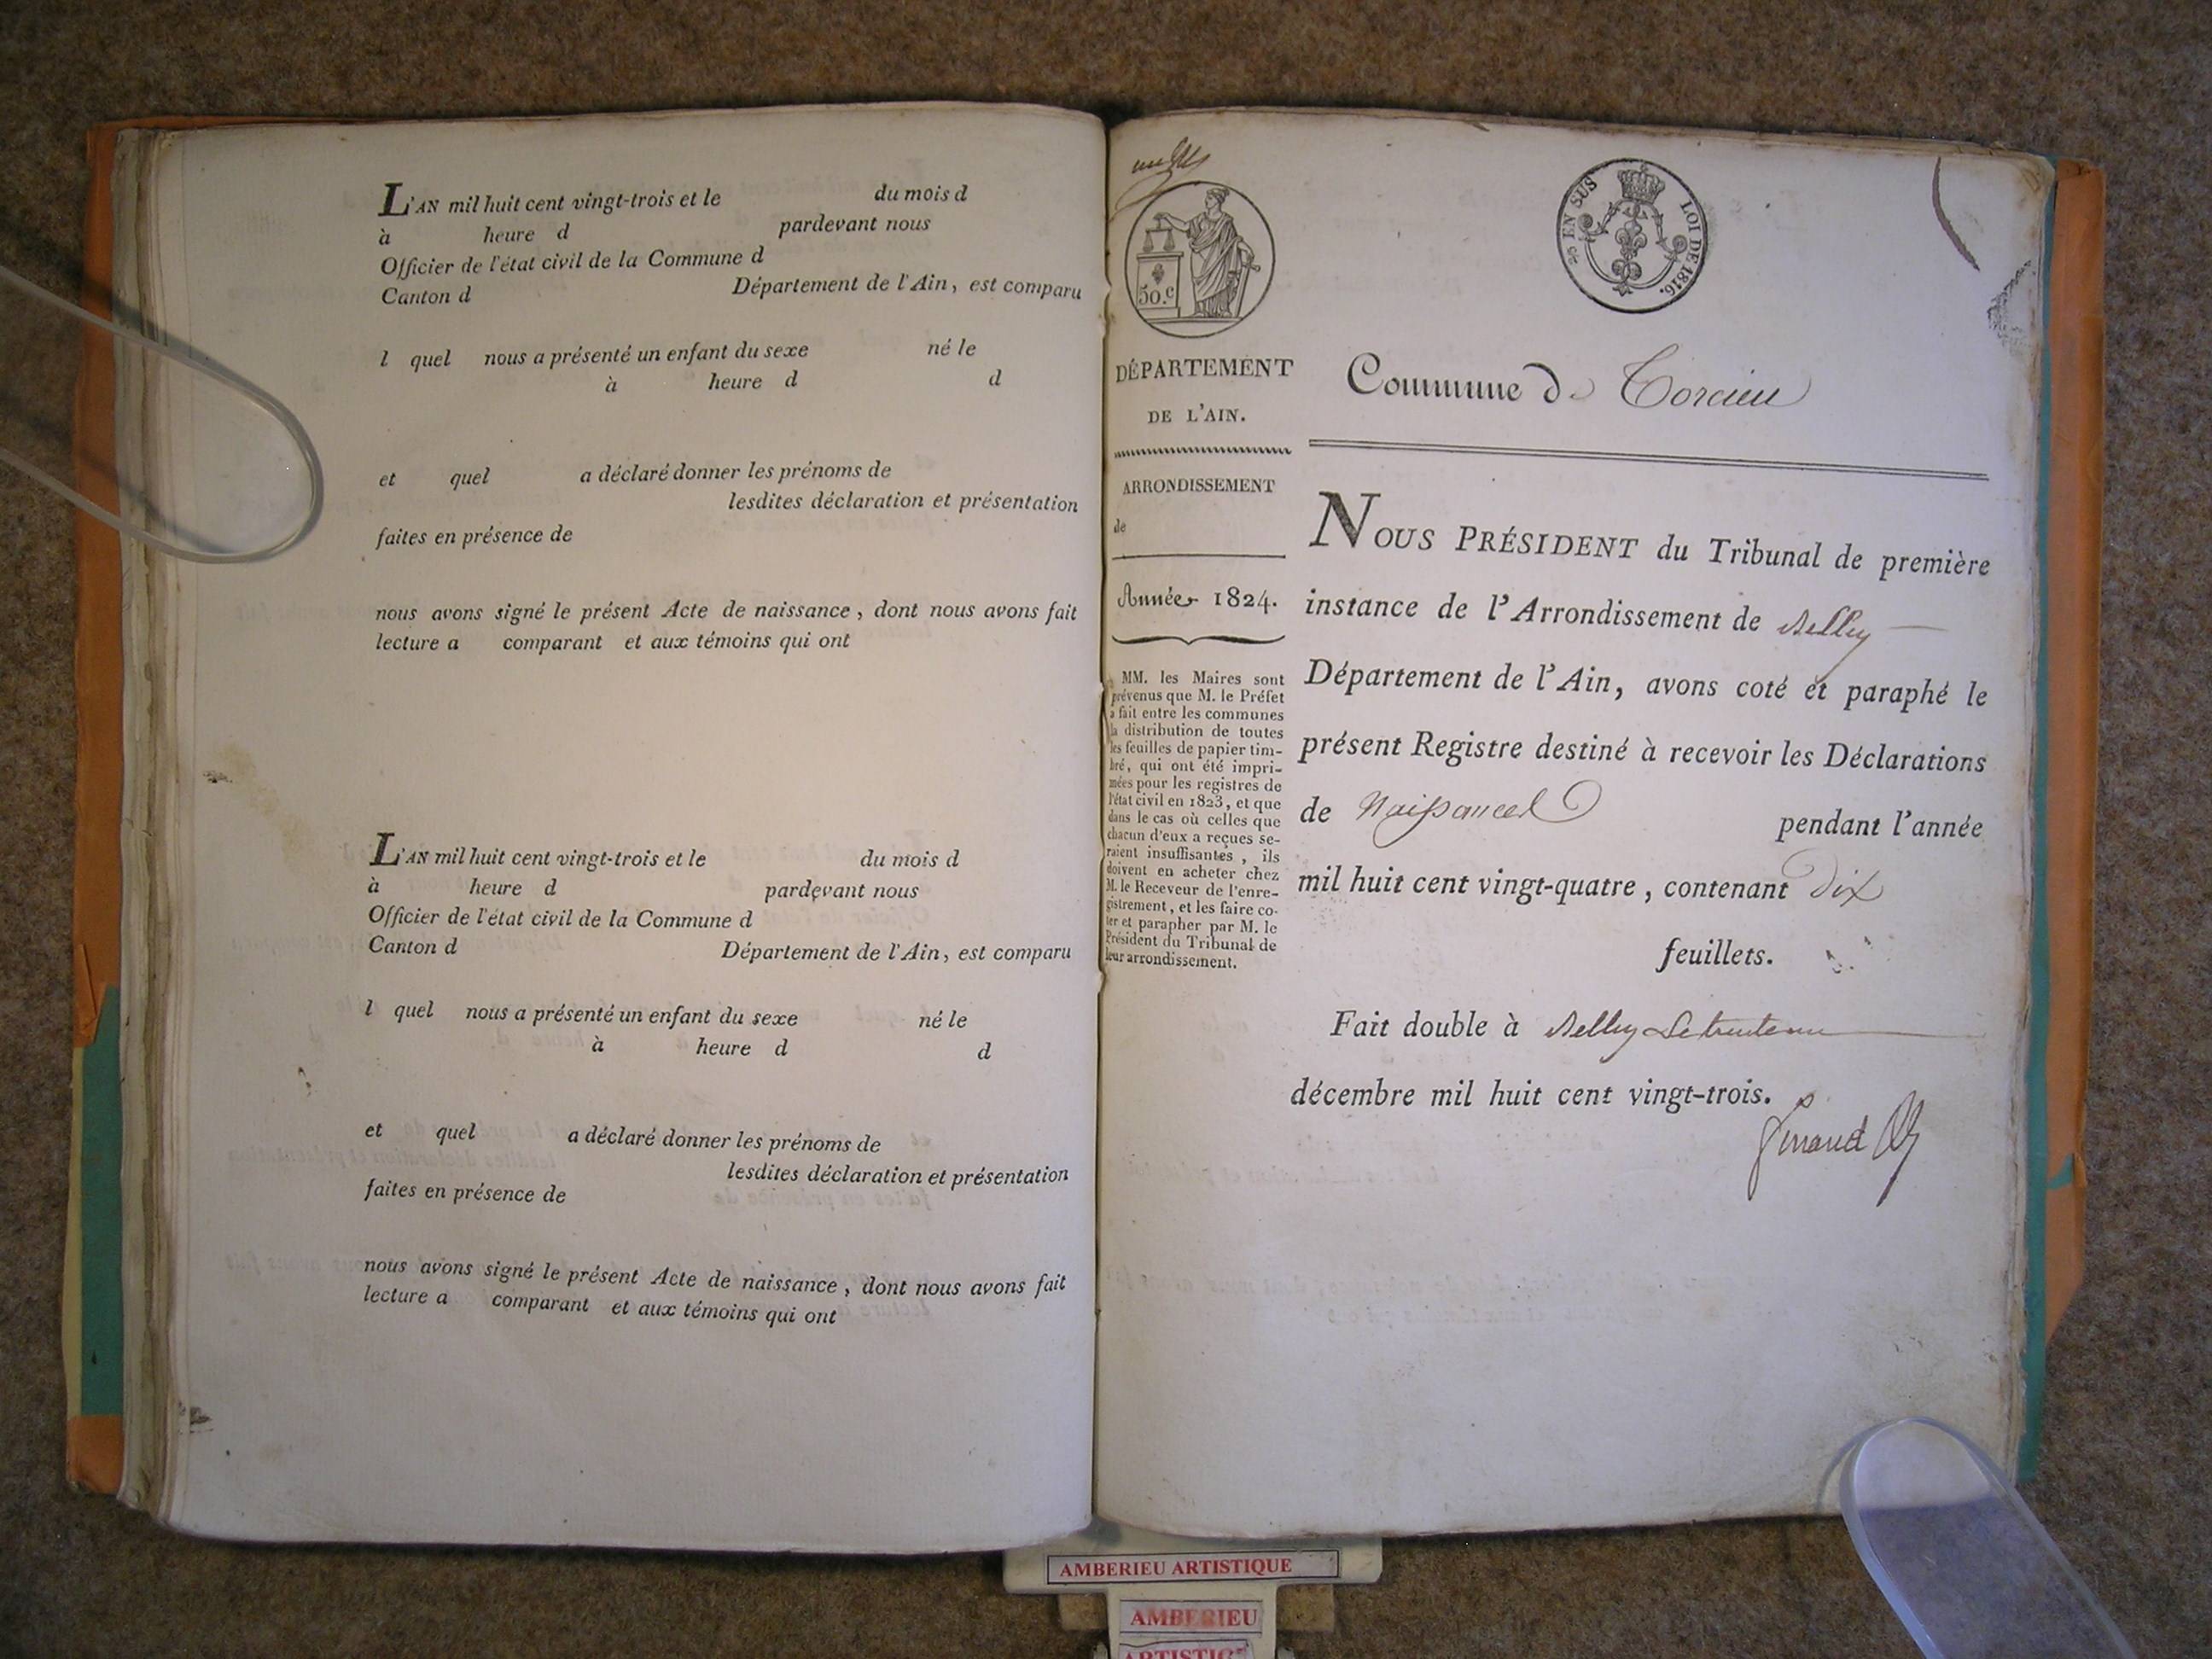 L'AN mil huit cent vingt-trois et le du mois d
à heure d pardevant nous
Officier de l'état civil de la Commune d
Canton d Département de l'Ain, est comparu
l quel nous a présenté un enfant du sexe né le
à heure d d
et quel a déclaré donner les prénoms de
lesdites déclaration et présentation
faites en présence de
nous avons signé le présent Acte de naissance, dont nous avons fait
lecture a comparant et aux témoins qui ont
L'AN mil huit cent vingt-trois et le du mois d
à heure d pardevant nous
Officier de l'état civil de la Commune d
Canton d Département de l'Ain, est comparu
l quel nous a présenté un enfant du sexe né le
à heure d d
et quel a déclaré donner les prénoms de
lesdites déclaration et présentation
faites en présence de
nous avons signé le présent Acte de naissance, dont nous avons fait
lecture a comparant et aux témoins qui ont
50.c
EN SUS LOI DE 1816.
DÉPARTEMENT
DE L'AIN.
ARRONDISSEMENT
de
Année 1824.
MM. les Maires sont
prévenus que M. le Préfet
a fait entre les communes
la distribution de toutes
les feuilles de papier tim-
bré, qui ont été impri-
mées pour les registres de
l'état civil en 1823, et que
dans le cas où celles que
chacun d'eux a reçues se-
raient insuffisantes, ils
doivent en acheter chez
M. le Receveur de l'enre-
gistrement, et les faire co-
ter et parapher par M. le
Président du Tribunal de
leur arrondissement.
Commune de Torcieu
NOUS PRÉSIDENT du Tribunal de première
instance de l'Arrondissement de Belley
Département de l'Ain, avons coté et paraphé le
présent Registre destiné à recevoir les Déclarations
de Naissances pendant l'année
mil huit cent vingt-quatre, contenant Dix
feuillets.
Fait double à Belley Le trente un
décembre mil huit cent vingt-trois.
AMBERIEU ARTISTIQUE
AMBERIEU